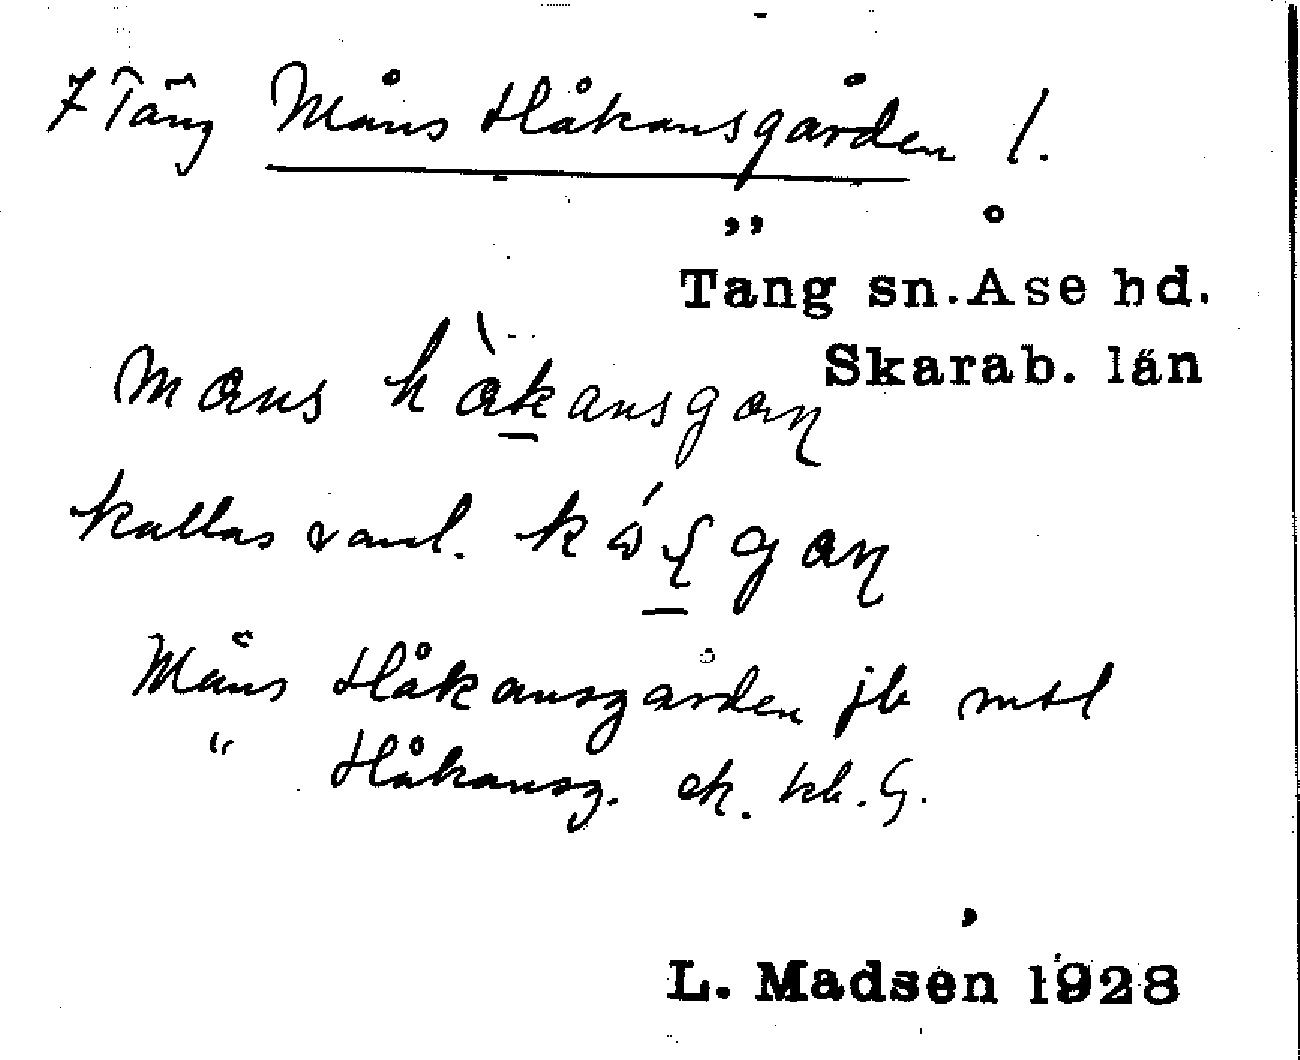 7 Täng Måns Håkansgården /.
Täng sn. Åse hd.
Skarab. län
mans håkansgaɳ
kallas vanl. kɷ́ʂgaɳ
Måns Håkansgården jb mtl
" Håkansg. ek. kb. G.
L. Madsén 1928